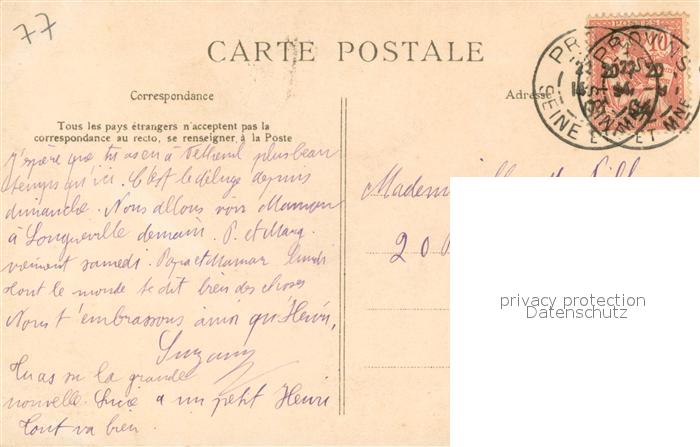 77
CARTE POSTALE
Correspondance
Adresse
Tous les pays étrangers n'acceptent pas la
correspondance au recto, se renseigner à la Poste
J'espère que tu as eu à plus beau
temps qu'ici. C'est le déluge depuis
dimanche. Nous allons voir Maman
à Longueville demain. P. et Marg.
viennent samedi. Papa et Maman lundi
tout le monde te dit bien des choses
Nous t'embrassons ainsi qu'Henri,
Suzanne
Tu as su la grande
nouvelle. Lucie a un petit Henri
tout va bien.
POSTES
10
PROVINS
SEINE ET MNE
20
privacy protection
Datenschutz